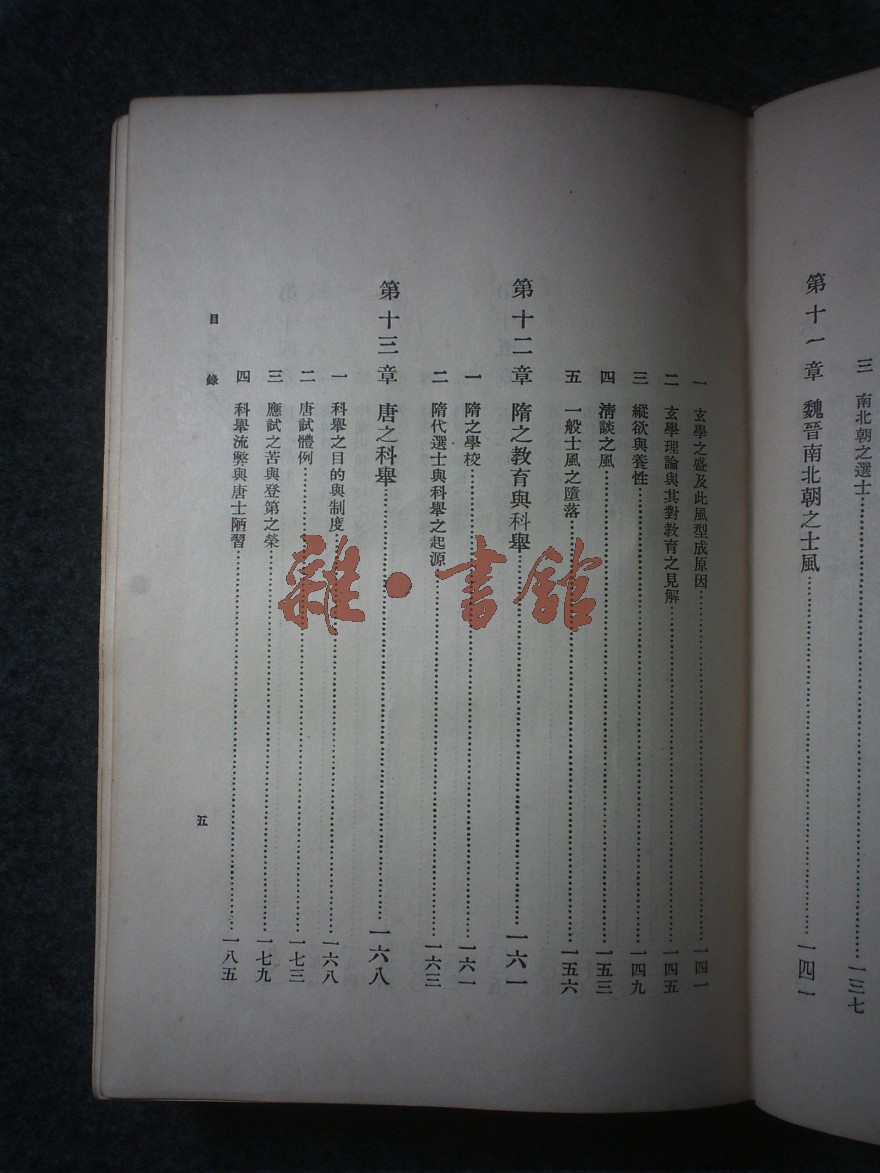 三 南北朝之選士……一三七
第十一章 魏晉南北朝之士風……一四一
一 玄學之盛及此風型成原因……一四一
二 玄學理論與其對教育之見解……一四五
三 縱欲與養性……一四九
四 清談之風……一五三
五 一般士風之墮落……一五六
第十二章 隋之教育與科舉……一六一
一 隋之學校……一六一
二 隋代選士與科舉之起源……一六三
第十三章 唐之科舉……一六八
一 科舉之目的與制度……一六八
二 唐試體例……一七三
三 應試之苦與登第之榮……一七九
四 科舉流弊與唐士陋習……一八五
目錄
五
雜·書館